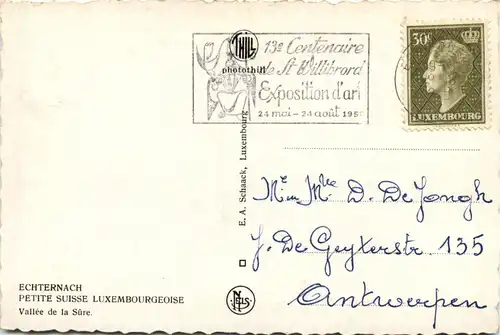 THILL
photothill
13e Centenaire
de St Willibrord
Exposition d'art
24 mai - 24 août
30c
LUXEMBOURG
E. A. Schaack, Luxembourg
D. De Jongh
J. De Geyterstr 135
Antwerpen
ECHTERNACH
PETITE SUISSE LUXEMBOURGEOISE
Vallée de la Sûre.
NELS